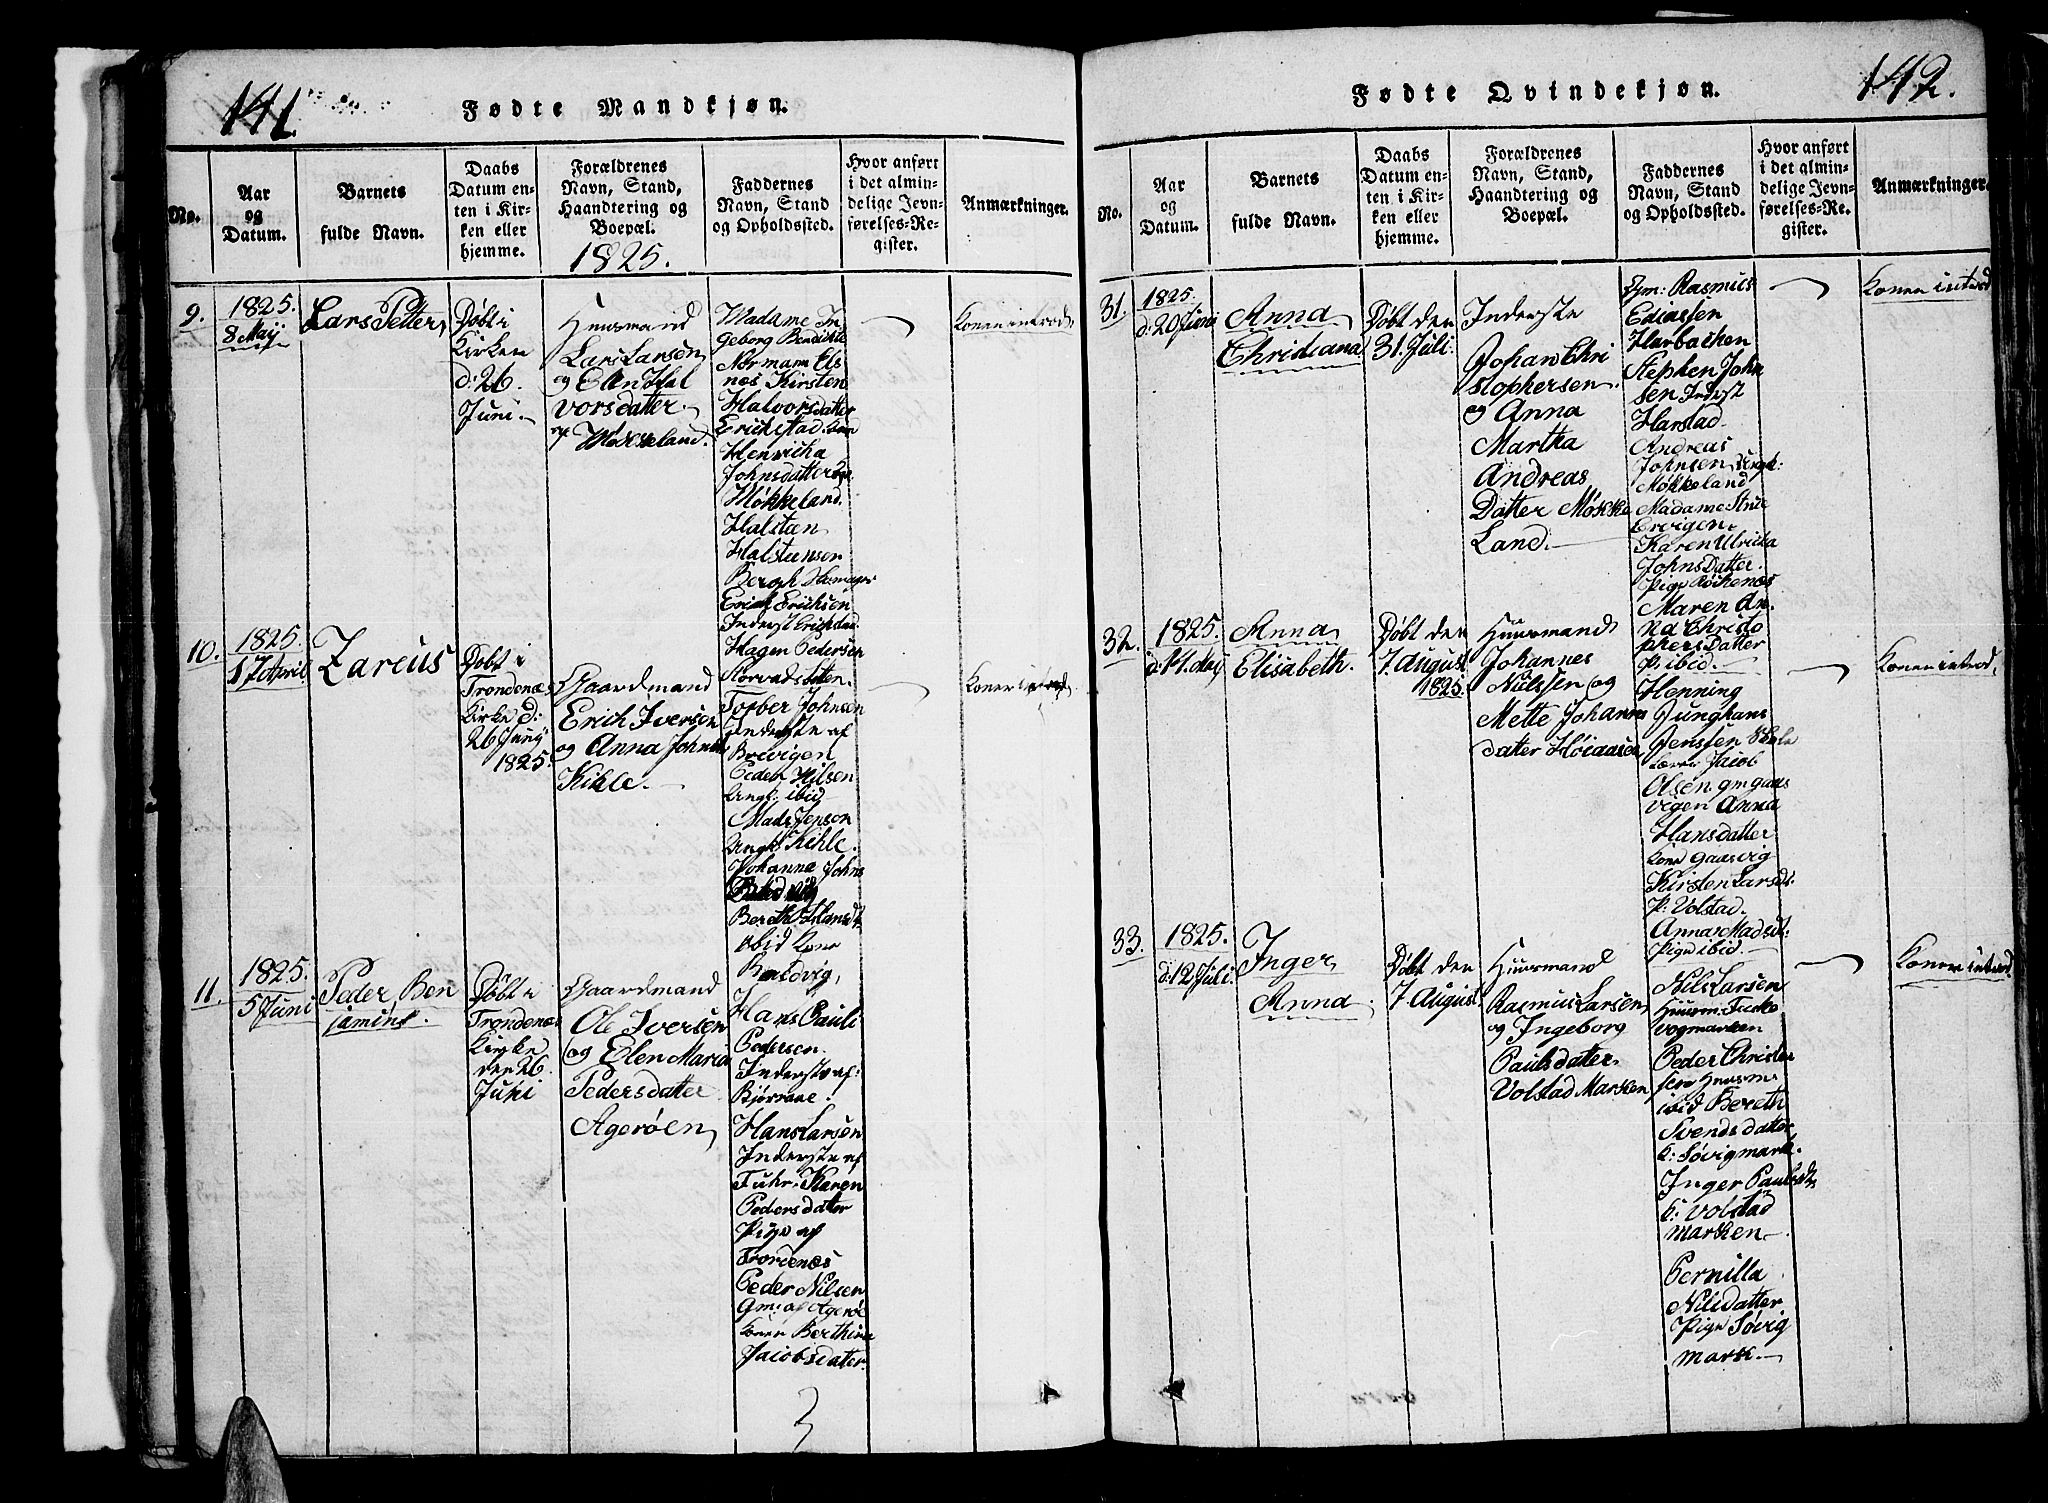 141
Fødte Mandkjøn.
No.
Aar
og
Datum.
Barnets
fulde Navn.
Daabs
Datum en-
ten i Kir-
ken eller
hjemme.
Forældrenes
Navn, Stand,
Haandtering og
Boepæl.
1825.
Faddernes
Navn, Stand
og Opholdssted.
Hvor anført
i det almin-
delige Jevn-
førelses-Re-
gister.
Anmærkninger.
9.
1825.
8 Maij
Lars Petter
Døbt i
Kirken
d: 26.
Juni.
Huusmand
Lars Larsen
og Elen Hal
vorsdatter
af Møkkeland.
Madame In
geborg Bendicte
Normann Els
nes Kirsten
Halvorsdatter
Erichstad
Henricha
Johnsdatter
Møkkeland.
Halsten
Halsteensen
Bergh
Erich Erichsen
Inderst Erichstad
Hagen Pedersen
Konen introd.
10.
1825.
17 April
Zareus
Døbt i
Trondenæs
Kirke d:
26 Junij
1825.
Gaardmand
Erich Iversen
og Anna Johnsd
Kihle.
Torber Johnsen
Inderste af
Bredvigen
Peder Nilsen
Ungk: ibid
Mads Jenson
Ungk: Kihle.
Johanna Johns
Bredvig
Bereth Hansd
ibid Kone
Bredvig,
Konen introd.
11.
1825.
5 Juni
Peder Ben
jamin.
Døbt i
Trondenæs
Kirke
den 26
Juni
Gaardmand
Ole Iversen
og Elen Maria
Pedersdatter
Agerøen
Hans Pauli
Pedersen
Inderste af
Hans Larsen
Inderste af
Fuhr. Karen
Pedersdatter
Pige af
Trondenæs
Peder Nilsen
Gm: af Agerøe
Konen Berthine
Jacobsdatter.
142.
Fødte Qvindekjøn.
No.
Aar
og
Datum.
Barnets
fulde Navn.
Daabs
Datum en-
ten i Kir-
ken eller
hjemme.
Forældrenes
Navn, Stand,
Haandtering og
Boepæl.
Faddernes
Navn, Stand
og Opholdssted.
Hvor anført
i det almin-
delige Jevn-
førelses-Re-
gister.
Anmærkninger.
31.
1825.
d: 20 Juni
Anna
Christiana
Døbt den
31. Juli.
Inderste
Johan Chri
stophersen
og Anna
Martha
Andreas
Datter Møkke
Land.
Rasmus
Harbachen
Stephen John
sen Inderst
Harstad.
Andreas
Johnsen Ungk:
Møkkeland
Madame
Ervigen.
Karen Ulricha
Johns Datter.
Pige Røchenæs
Maren An
na Christo
phers Datter
P: ibid.
Konen introd
32.
1825.
Anna
Elisabeth.
Døbt den
7. August
1825.
Huusmand
Johannes
Nielssen og
Mette Johannes
datter Høiaasen
Henning
Junghans
Jenssen Skole
lærer Jacob
Olsen gm gaas
vigen Anna
Hansdatter
Kone Gaasvig
Kirsten Larsdt:
P: Volstad.
Anna Madsdt:
Pige ibid.
Konen introd.
33.
1825.
d: 12 Juli
Inger
Anna
Døbt den
7 August
Huusmand
Rasmus Larsen
og Ingeborg
Paulsdatter
Volstad Marken
Nils Larsen
Huusm:
vogmarken
Peder Christen
sen Huusm:
ibid Bereth
Svendsdatter
k: Søvigmark.
Inger Paulsdt
k: Volstad
marken
Pernilla
Nilsdatter
Pige Søvig
mark.
Konen introd.